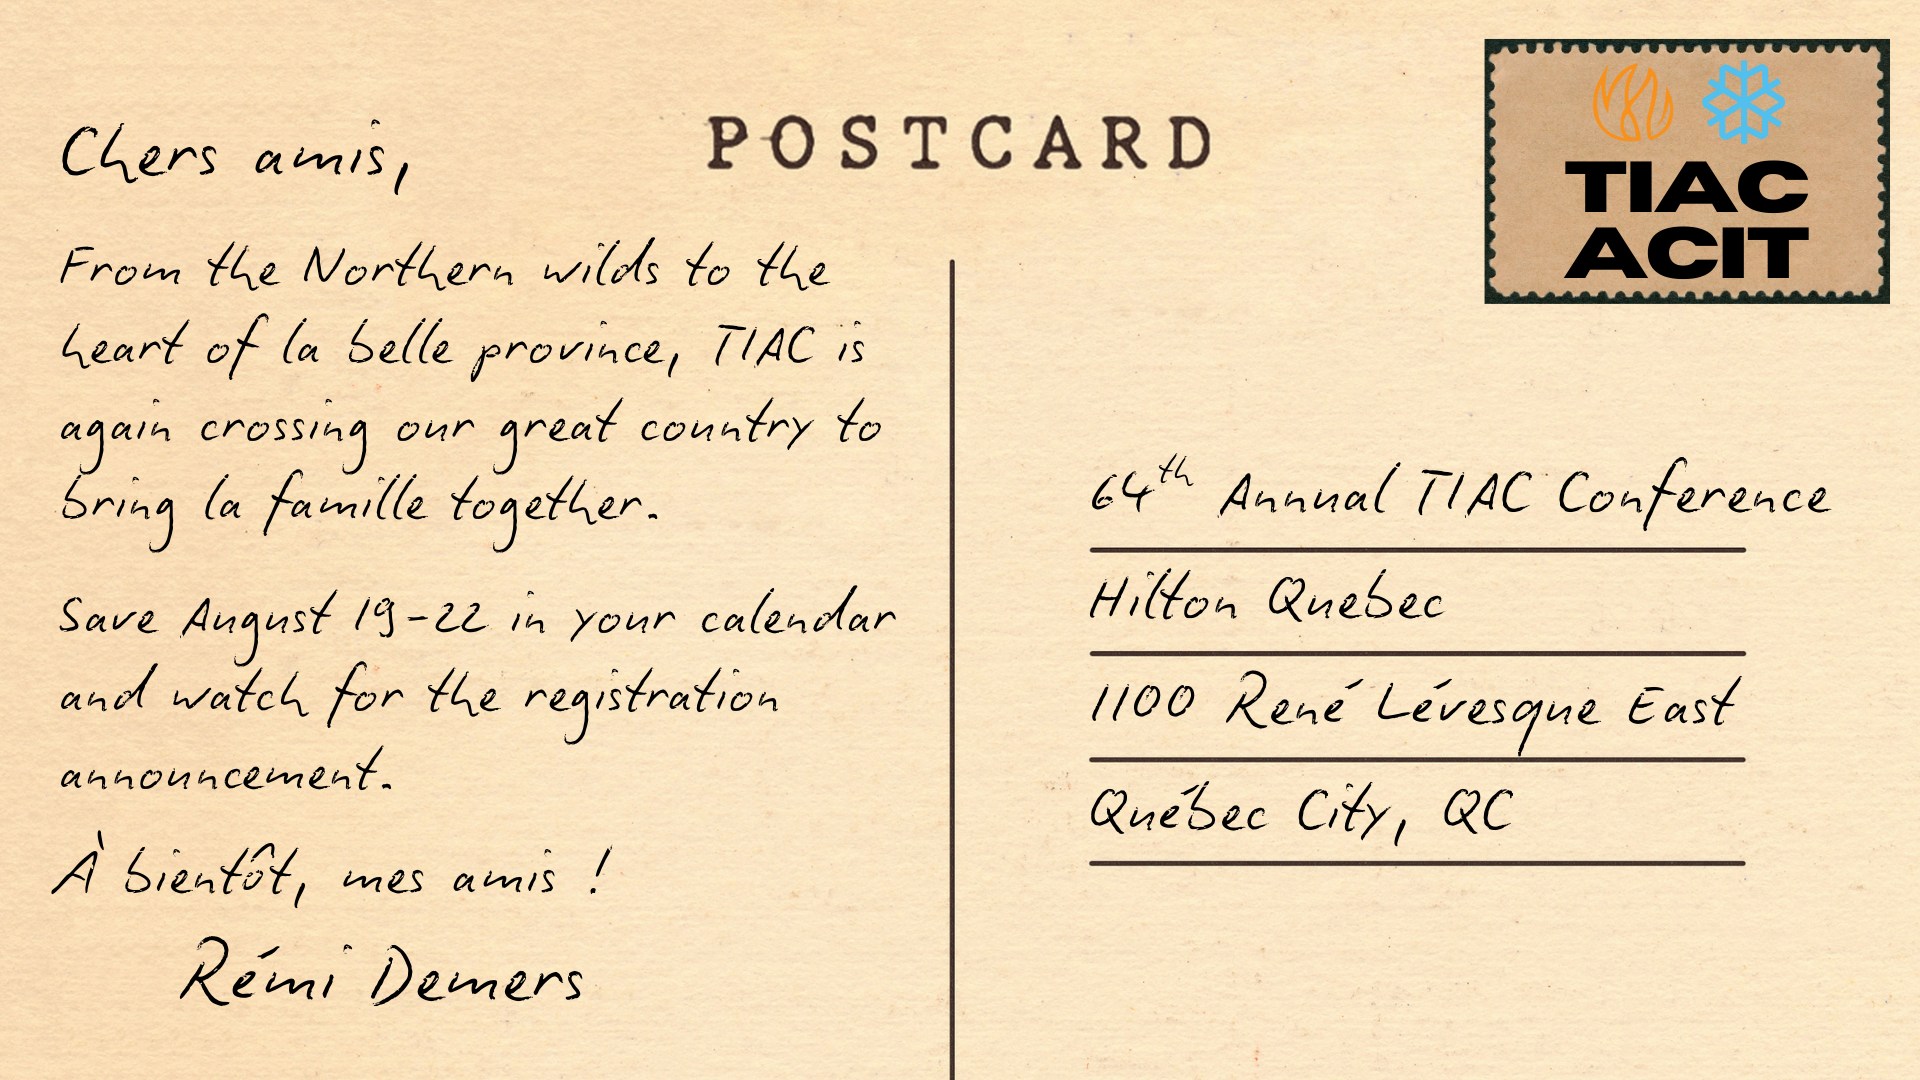 POSTCARD
TIAC
ACIT
Chers amis,
From the Northern wilds to the
heart of la belle province, TIAC is
again crossing our great country to
bring la famille together.
Save August 19-22 in your calendar
and watch for the registration
announcement.
À bientôt, mes amis !
Rémi Demers
64th Annual TIAC Conference
Hilton Quebec
1100 René Lévesque East
Québec City, QC